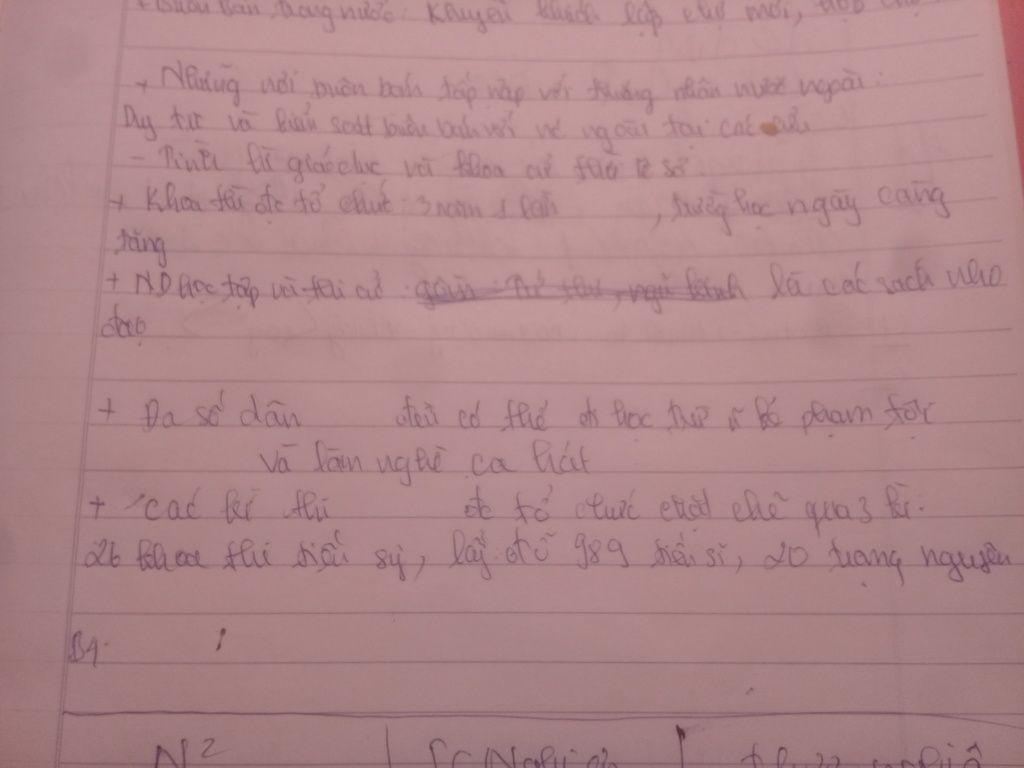 + Buôn bán trong nước: Khuyến khích lập chợ mới, họp chợ
+ Những nơi buôn bán tấp nập với thương nhân nước ngoài.
Duy trì và kiểm soát buôn bán với nc ngoài tại các cửa
- Tình hình giáo dục và khoa cử thời lê sơ.
+ Khoa thi đc tổ chức 3 năm 1 lần , trường học ngày càng
tăng
+ ND học tập và thi cử là các sách nho
đạo
+ Đa số dân đều có thể đi học trừ kẻ phạm tội
và làm nghề ca hát
+ các kì thi đc tổ chức chặt chẽ qua 3 kì.
26 khoa thi tiến sỹ, lấy đỗ 989 tiến sĩ, 20 trạng nguyên
B4.
N²